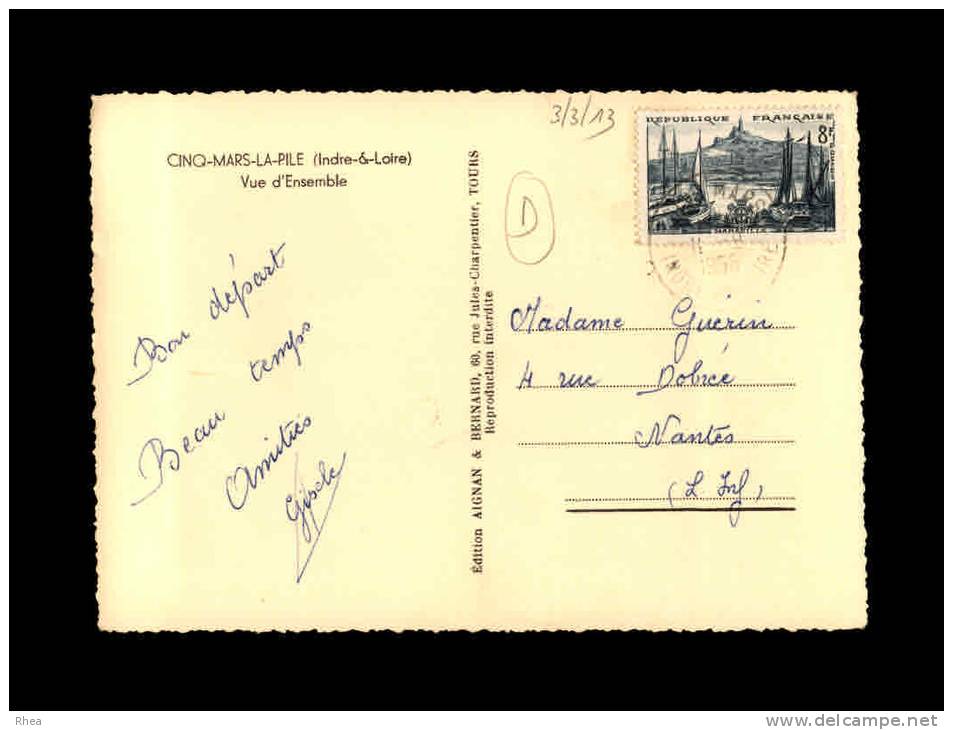 3/3/13
REPUBLIQUE FRANÇAISE
8F
MARSEILLE
1956
CINQ-MARS-LA-PILE (Indre-&-Loire)
Vue d'Ensemble
Bon départ
Beau temps
Amitiés
Gisèle
Édition AIGNAN & BERNARD, 60, rue Jules-Charpentier, TOURS
Reproduction interdite
D
Madame Guérin
4 rue Dobrée
Nantes
(L. Inf)
Rhea
www.delcampe.net